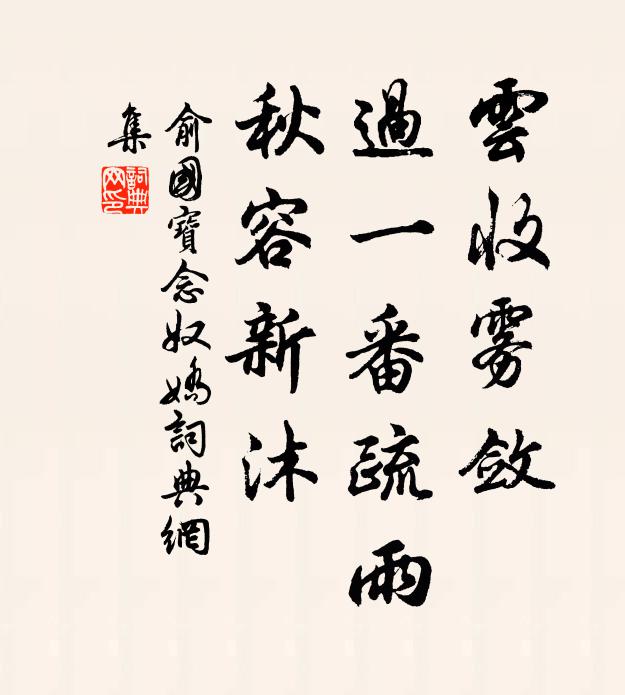 雲收雾斂
過一番疏雨
秋容新沐
俞國寶念奴嬌詞典網
集
詞典
网印